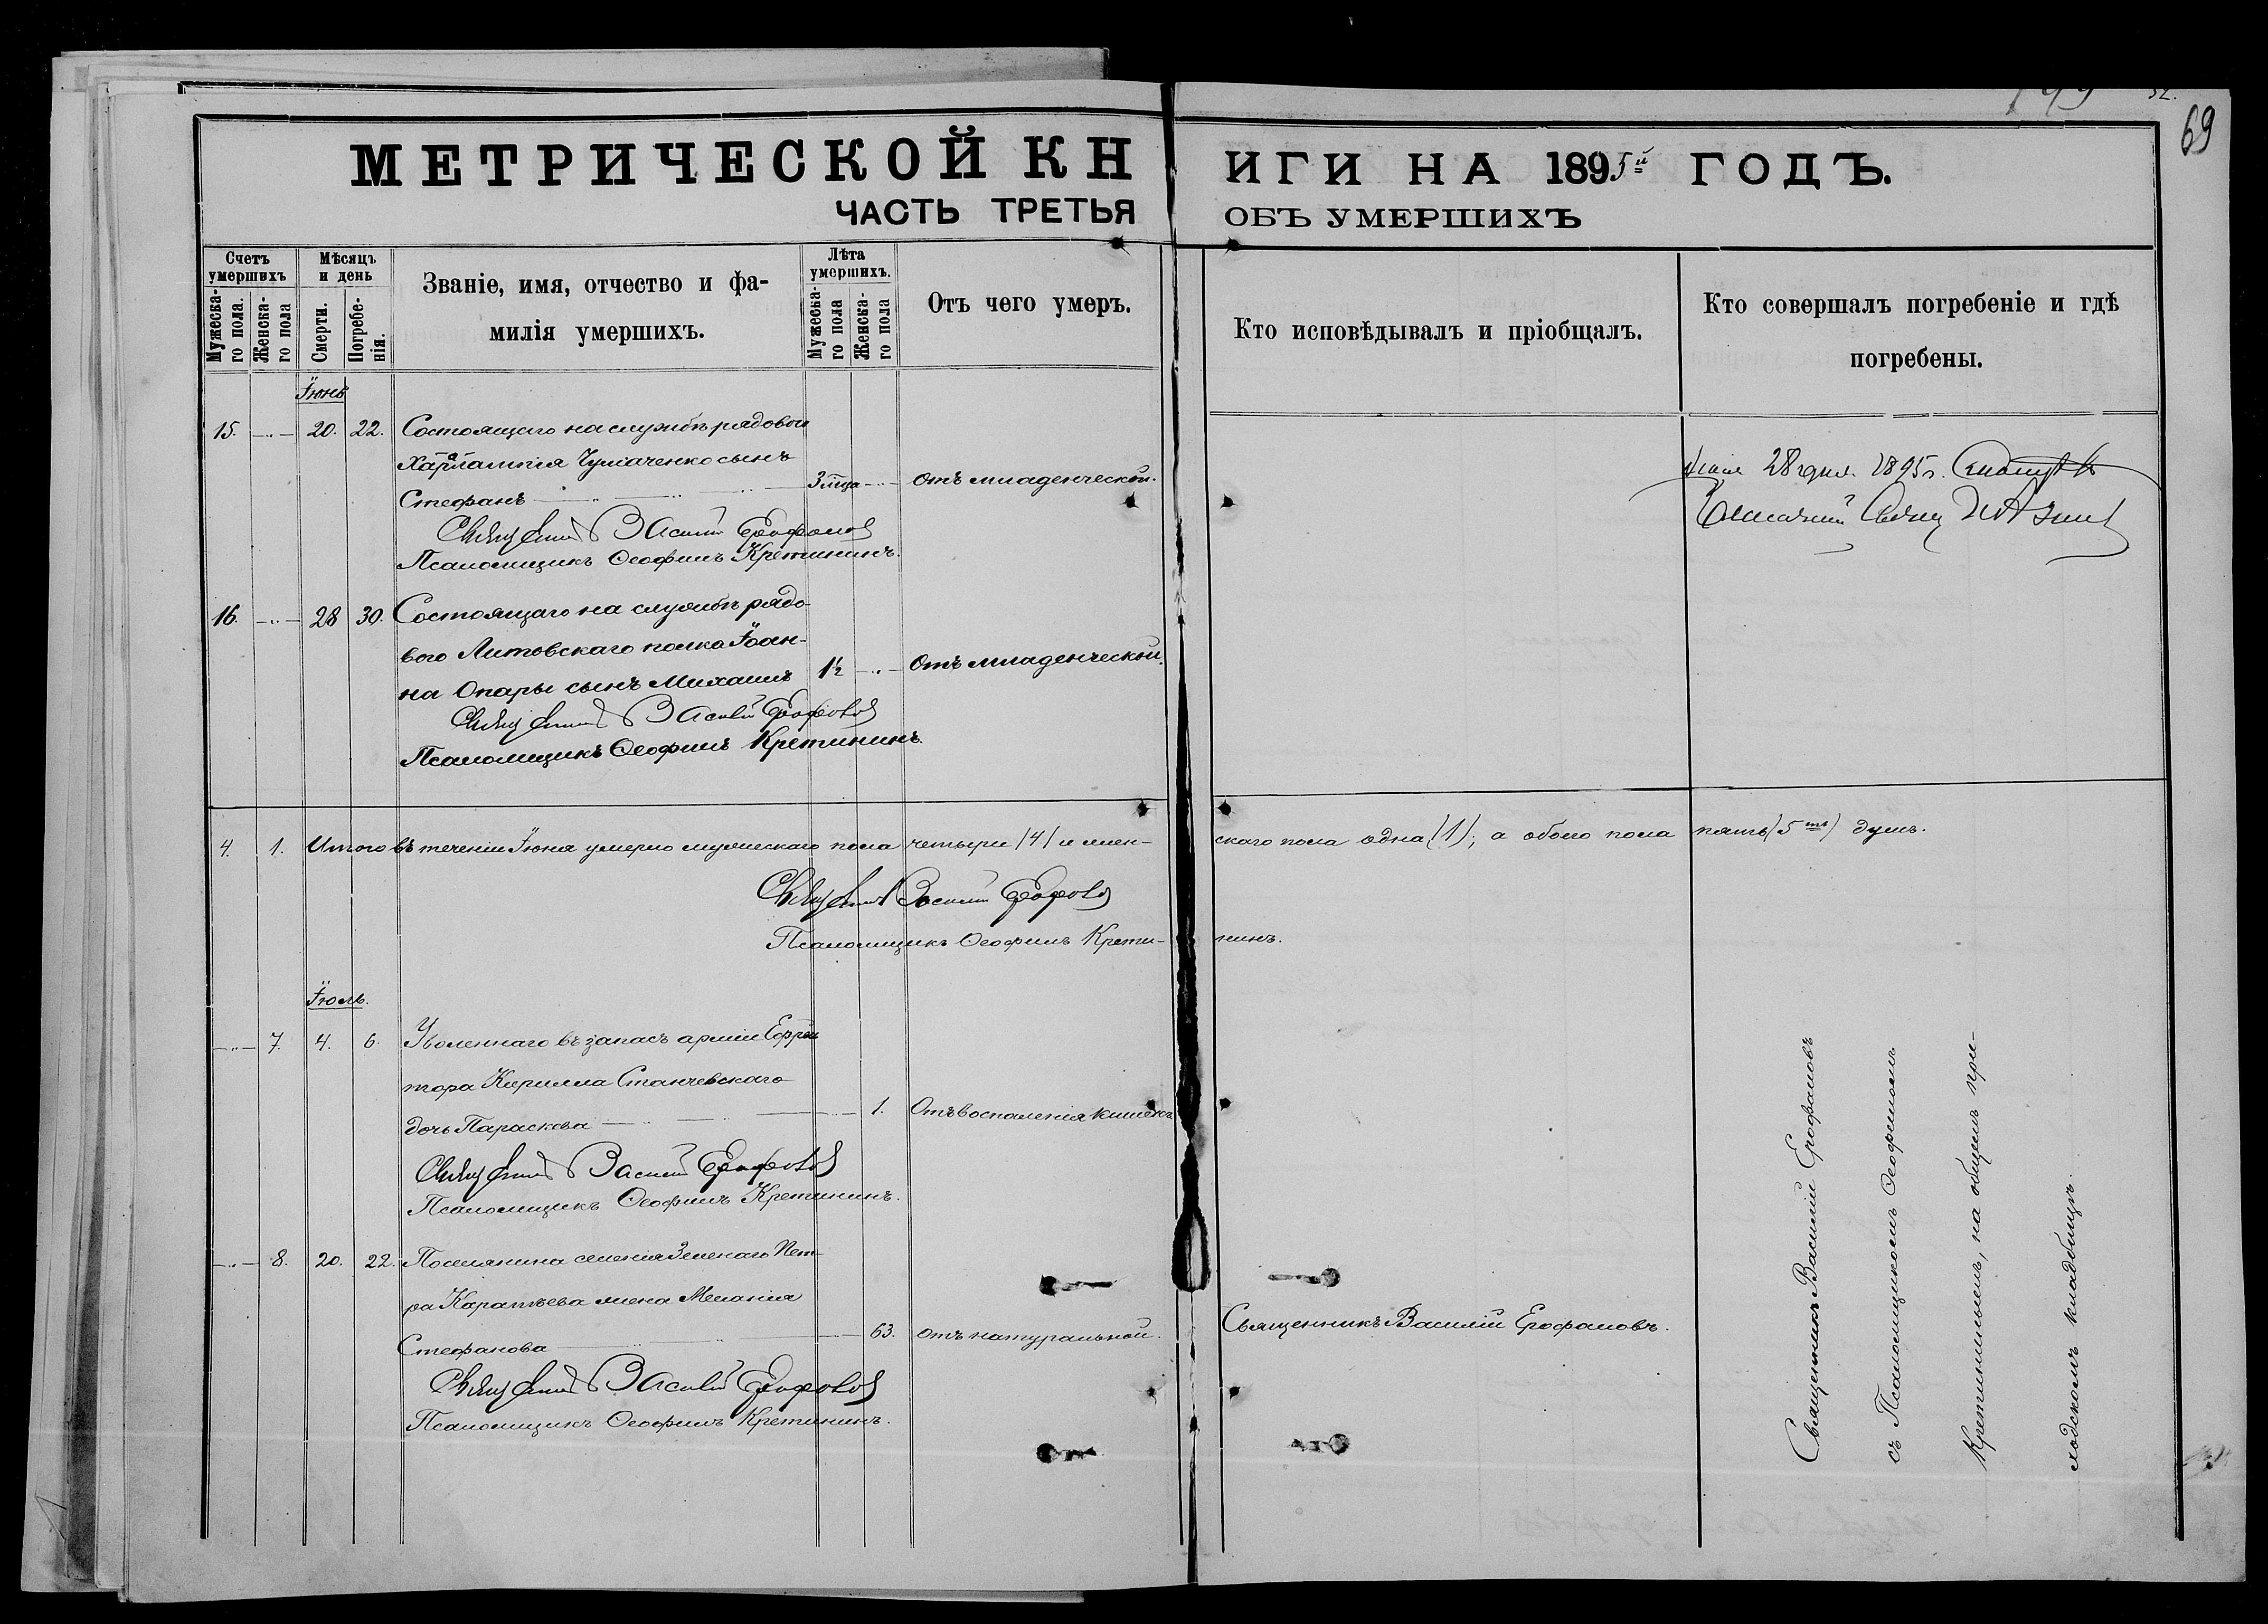 69
МЕТРИЧЕСКОЙ КНИГИ НА 1895й ГОДЪ.
ЧАСТЬ ТРЕТЬЯ ОБЪ УМЕРШИХЪ
Счетъ умершихъ
Мужеска-го пола.
Женска-го пола
Мѣсяцъ и день
Смерти.
Погребе-нія.
Званіе, имя, отчество и фа-
милія умершихъ.
Лѣта умершихъ.
Мужеска-го пола
Женска-го пола
Отъ чего умеръ.
Кто исповѣдывалъ и пріобщалъ.
Кто совершалъ погребеніе и гдѣ
погребены.
Іюнь
15. 20. 22. Состоящаго на службѣ рядовои
Харлампія Чумаченко сынъ
Стефанъ 3 отъ младенческой.
Священникъ Василій Ерофаловъ
Псаломщикъ Ѳеофилъ Кретининъ.
28 1895 г.
16. 28 30. Состоящаго на службѣ рядо-
вого Литовскаго полка Іоан-
на Опары сынъ Михаилъ 1½ Отъ младенческой.
Священникъ Василій Ерофаловъ
Псаломщикъ Ѳеофилъ Кретининъ.
4. 1. Итого въ теченіи Іюня умерло мужескаго пола четыре (4) и жен-скаго пола одна (1), а обоего пола пять (5ть) душъ.
Священникъ Василій Ерофаловъ
Псаломщикъ Ѳеофилъ Крети-нинъ.
Іюль.
7. 4. 6. Уволеннаго въ запасъ арміи Ефрей
тора Кирилла Станчевскаго
дочь Параскева 1. Отъ воспаленія кишекъ
Священникъ Василій Ерофаловъ
Псаломщикъ Ѳеофилъ Кретининъ.
8. 20. 22. Поселянина селенія Зеленаго Пет-
ра Каратѣева жена Меланія
Стефанова 63. отъ натуральной. Священникъ Василій Ерофаловъ.
Священникъ Василій Ерофаловъ
Псаломщикъ Ѳеофилъ Кретининъ.
Священникъ Василій Ерофаловъ
съ Псаломщикомъ Ѳеофиломъ
Кретининымъ, на общемъ при-
ходскомъ кладбищѣ.